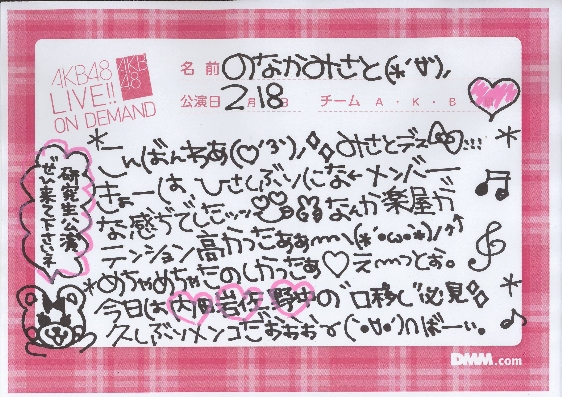 AKB48
LIVE!!
ON DEMAND
AKB
48
名前 のなかみさと(*'∀'),
公演日 2月18日 チーム A・K・B
*こんばんわあ(♡'3'),みさとデス!!!
きょーは、ひさしぶりになメンバー
な感ぢでしたッッ なんか楽屋が
テンション高かったあぁm\(*´ω`*)/↑
*めちゃめちゃたのしかったあ♡えへっとぉ。
今日は内田岩佐野中の"口移し"必見
久しぶりメンコだおぉぉ(`・∀・´)∩ばーぃ。
研究生公演
ぜひ来て下さいネ
DMM.com